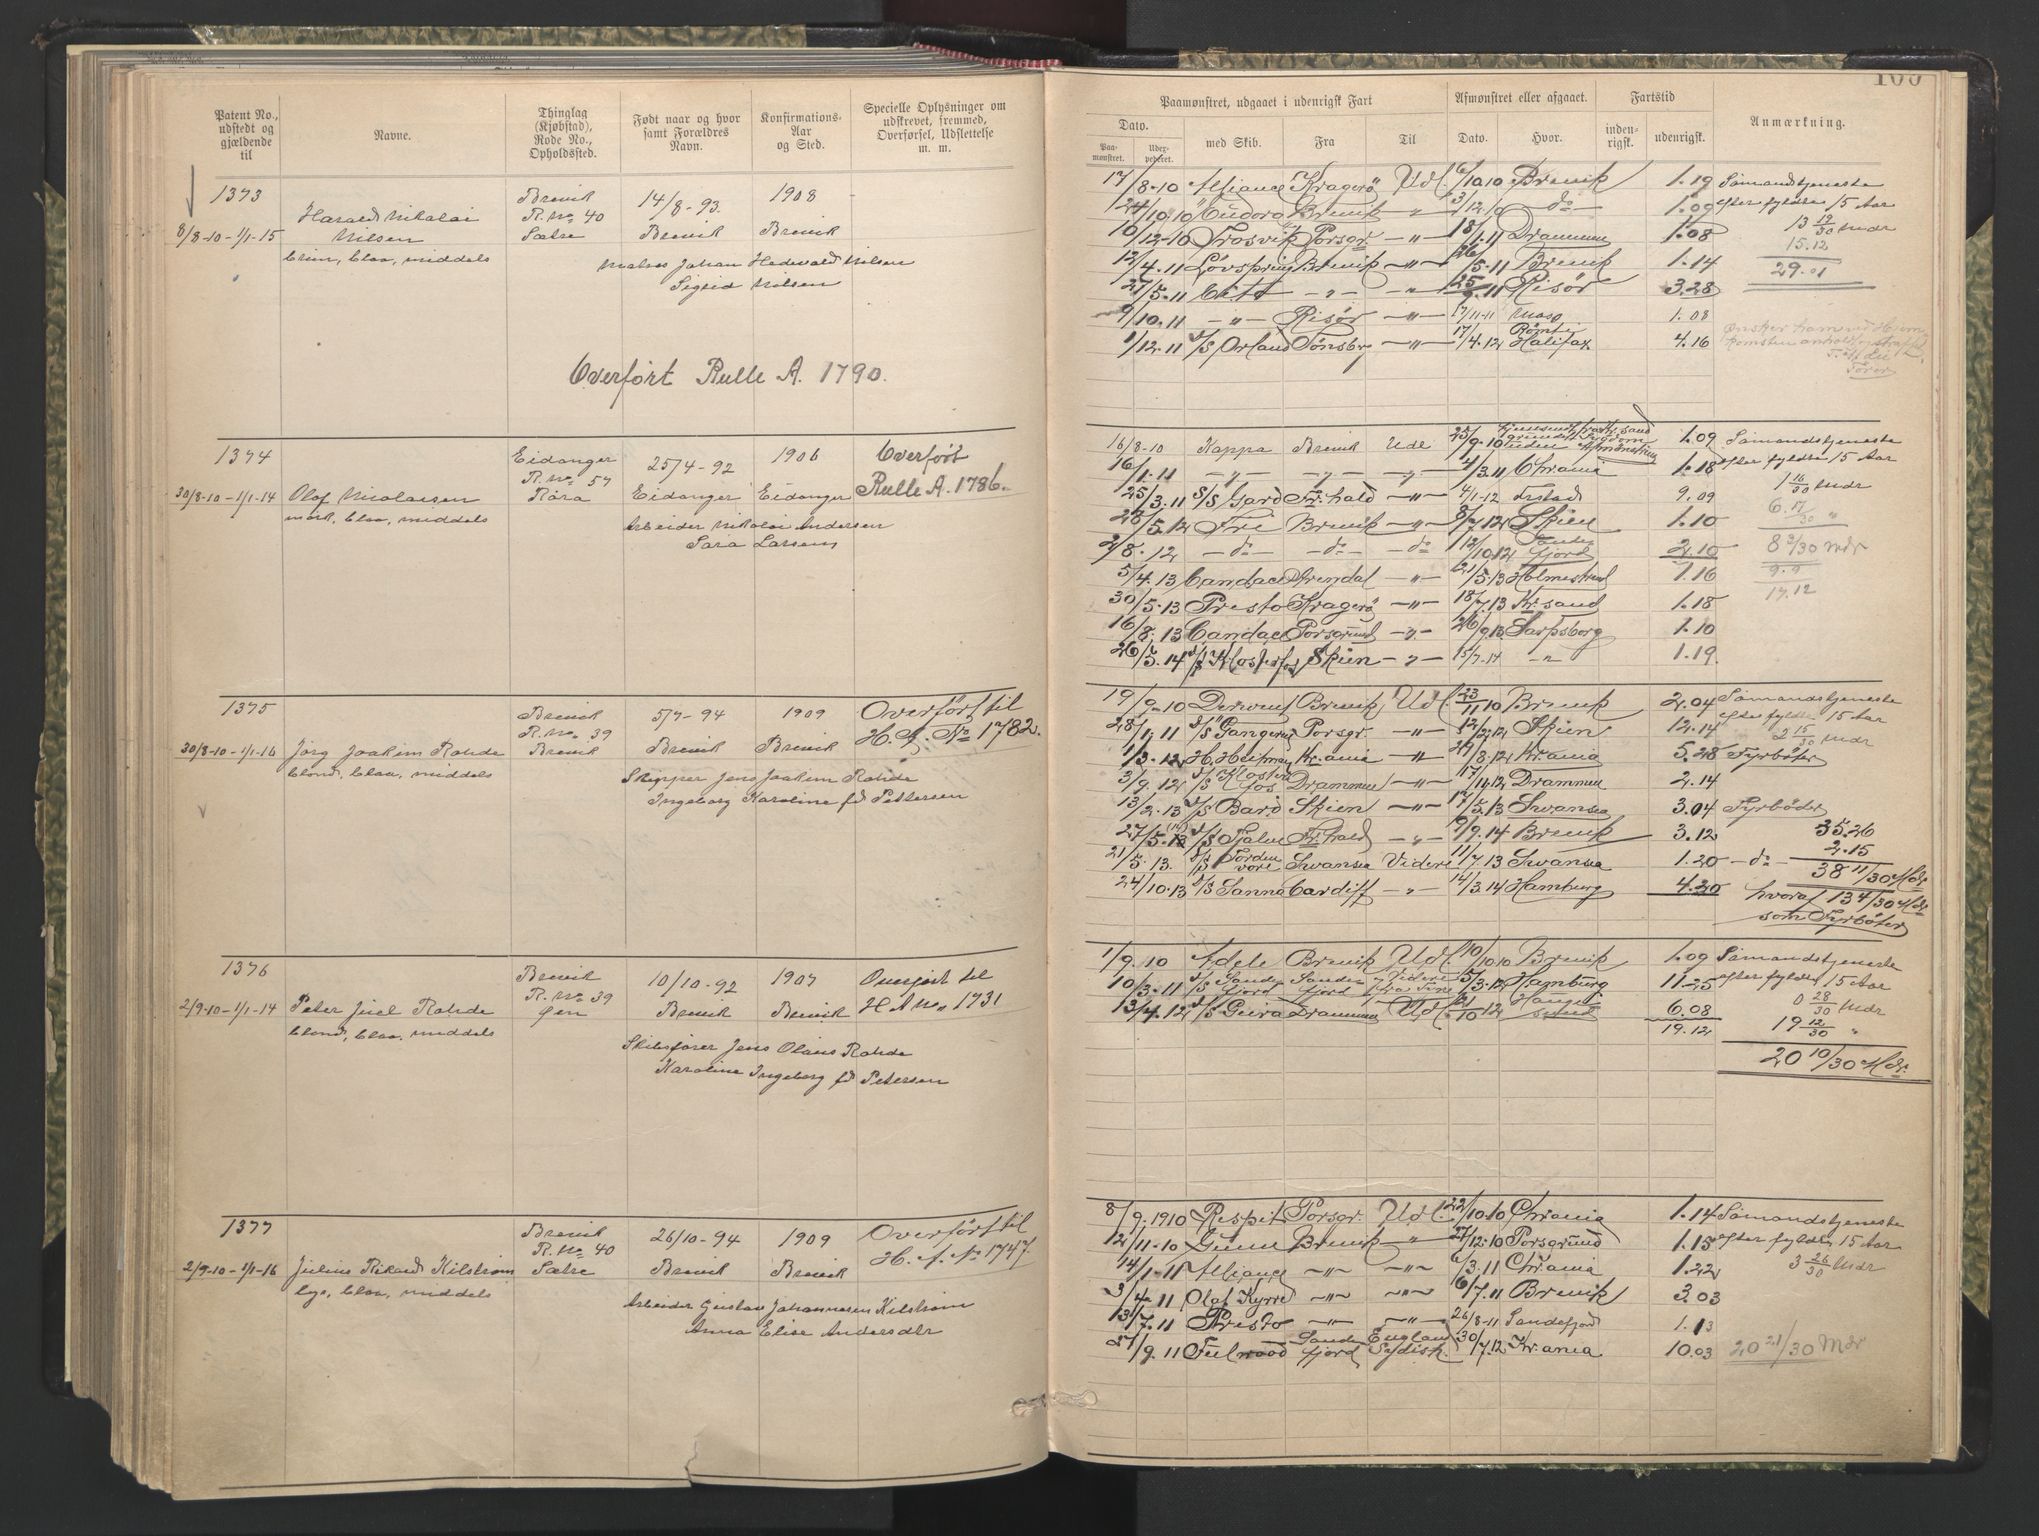 Patent No.,
udstedt og
gjældende
til
Navne.
Thinglag
(Kjøbstad),
Rode No.,
Opholdssted.
Født naar og hvor
samt Forældres
Navn.
Konfirmations-
Aar
og Sted.
Specielle Oplysninger om
udskrevet, fremmed,
Overførsel, Udslettelse
m. m.
1373
8/8-10-1/1-15
Harald Nikolai
Nilsen
brun, blaa, middels
Brevik
R. No 40
Sætre
14/8-93.
Brevik
1908
Brevik
Matros Johan Hedevald Nilsen
Sigrid Nilsen
Overført Rulle A. 1790.
1374
30/8-10-1/1-14
Olaf Nicolaisen
mørk, blaa, middels
Eidanger
R. No 57
Røra
25/4-92
Eidanger
1906
Eidanger
Overført
Rulle A. 1786.
Arbeider Nikolai Andersen
Sara Larsen
1375
30/8-10-1/1-16
Jørg Joakim Rohde
blond, blaa, middels
Brevik
R. No 39
Brevik
5/7-94
Brevik
1909
Brevik
Overført til
H. A. No 1782.
Skipper Jens Joakim Rohde
Ingeborg Karoline fd Pettersen
1376
2/9-10-1/1-14
Peter Juel Rohde
blond, blaa, middels
Brevik
R. No 39
Øen
10/10-92
Brevik
1907
Brevik
Overført til
H A No 1731
Skibsfører Jens Olaus Rohde
Karoline Ingeborg fd Petersen
1377
2/9-10-1/1-16
Julius Rikard Kilstrøm
lys, blaa, middels
Brevik
R. No 40
Sætre
26/10-94
Brevik
1909
Brevik
Overført til
H. A. No 1747.
Arbeider Gustav Johannesen Kilstrøm
Anna Elise Andersdtr
Paamønstret, udgaaet i udenrigsk Fart
Afmønstret eller afgaaet.
Fartstid
Anmærkning.
Dato.
Paa-
mønstret.
Udex-
pederet.
med Skib.
Fra
Til
Dato.
Hvor.
inden-
rigsk.
udenrigsk.
17/8-10 Alliance Kragerø Udl. 6/10.10 Brevik 1.19 Sømandstjeneste
24/10.10 Eudora Brevik -"- 3/12.10 -do- 1.09 efter fyldte 15 Aar
10/12-10 Frosvik Porsgr -"- 18/1.11 Drammen 1.08 13 19/30 Mdr
15.12
12/4.11 Løvspring Brevik -"- 26/5.11 Brevik 1.14 29.01
27/5.11 Cito -"- -"- 25/9.11 Risør 3.28
9/10.11 -"- Risør -"- 17/11-11 Moss 1.08
1/12.11 D/S Orland Tønsberg -"- 17/4.12 Rømte Halifax 4.16
16/8-10 Kappa Brevik Udl 25/9.10 1.09 Sømandstjeneste
16/1.11 -"- -"- -"- 4/3.11 Chrania 1.18 efter fyldte 15 Aar
25/3.11 S/S Gard Fr.hald -"- 4/1-12 Frstad 9.09 1 16/30 Mdr
28/5.12 Fri Brevik -"- 8/7.12 Skien 1.10 6.17/30 "
2/8.12 -do- -do- -do- 12/10.12 Sandefjord 2.10 8 3/30 Mdr
9.9
5/4.13 Candace Arendal -"- 21/5.13 Holmestrand 1.16
17.12
30/5.13 Presto Kragerø -"- 18/7.13 Kr.sand 1.18
16/8.13 Candace Porsgrund -"- 26/9.13 Sarpsborg 1.10
26/5.14 D/S Klosterfos Skien -"- 15/7-14 -"- 1.19
19/9-10 Derwent Brevik Udl. 23/11.10 Brevik 2.04 Sømandstjeneste
28/1.11 Porsgr. -"- 12/2.12 Skien 12.14 efter fyldte 15 Aar
2 15/30 Mdr
1/3.12 H. Heitman Kr.ania -"- 29/8.12 Kr.ania 5.28 Fyrbøter
3/9.12 D/S Klosterfos Drammen -"- 17/11.12 Drammen 2.14
13/2.13 D/S Bard Skien -"- 17/5.13 Swansea 3.04 Fyrbøder
27/5.13 (14) D/S Fr.hald -"- 9/9.14 Brevik 3.12 35.26
2.15
21/5.13. D/S Tordenvore Swansea Videre 11/7.13 Swansea 1.20 -do- 38 11/30 Mdr.
24/10.13 D/S Sanna Cardiff -"- 14/3.14 Hamburg 4.20 hvoraf 13 4/30 Mdr
som Fyrbøter
1/9.10 Adele Brevik Udl. 10/10.10 Brevik 1.09 Sømandstjeneste
10/3.11 D/S Sandefjord Sandefjord Videre 5/3.12 Hamburg 11.25 efter fyldte 15 Aar
0 28/30 Mdr
13/4.12 D/S Geira Drammen Udl. 21/10 12 Haugesund 6.08
19.12 19 12/30 "
20 10/30 Mdr.
8/9.1910 Respit Porsgr. Udl. 22/10.10 Chrania 1.14 Sømandstjeneste
12/11-10 Gunn Brevik -"- 27/12.10 Porsgrund 1.15 efter fyldte 15 Aar
14/1-11 Alliance -"- -"- 6/3.11 Chrania 1.22 3 26/30 Mdr
3/4.11 Olaf Kyrre -"- -"- 6/7.11 Brevik 3.03
13/7.11 Presto -"- -"- 26/8-11 Sandefjord 1.13
27/9.11 Fulwood Sandefjord England Sydisk. 30/7.12 Kr.ania 10.03 20 21/30 Mdr